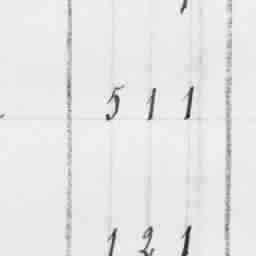 5 1 1
1 2 1